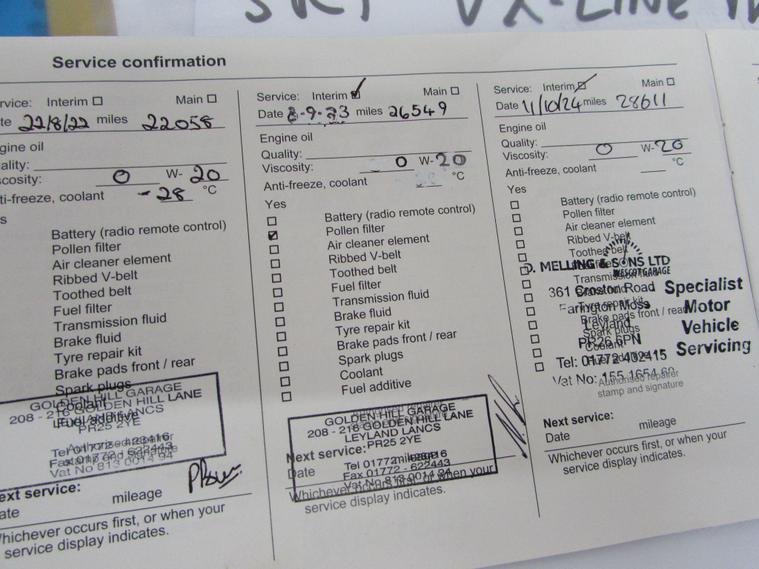 Service confirmation
rvice: Interim Main
te 22/8/22 miles 22058
ngine oil
ality:
cosity: 0 W- 20
ti-freeze, coolant -28 °C
s
Battery (radio remote control)
Pollen filter
Air cleaner element
Ribbed V-belt
Toothed belt
Fuel filter
Transmission fluid
Brake fluid
Tyre repair kit
Brake pads front / rear
Spark plugs
GOLDEN HILL GARAGE
208 - 216 GOLDEN HILL LANE
LEYLAND LANCS
PR25 2YE
Fax 01772 - 622443
Vat No 813 0014 94
ext service:
ate mileage
Whichever occurs first, or when your
service display indicates.
Service: Interim Main
Date 8-9-23 miles 26549
Engine oil
Quality:
Viscosity: 0 W- 20
Anti-freeze, coolant °C
Yes
Battery (radio remote control)
Pollen filter
Air cleaner element
Ribbed V-belt
Toothed belt
Fuel filter
Transmission fluid
Brake fluid
Tyre repair kit
Brake pads front / rear
Spark plugs
Coolant
Fuel additive
GOLDEN HILL GARAGE
208 - 216 GOLDEN HILL LANE
LEYLAND LANCS
PR25 2YE
Next service:
Date mileage
Tel 01772
Fax 01772 - 622443
Vat No 813 0014 94
Whichever occurs first, or when your
service display indicates.
Service: Interim Main
Date 11/10/24 miles 28611
Engine oil
Quality:
Viscosity: 0 W- 20
Anti-freeze, coolant °C
Yes
Battery (radio remote control)
Pollen filter
Air cleaner element
Ribbed V-belt
Toothed belt
D. MELLING & SONS LTD
WESCOT GARAGE
Transmission fluid
361 Croston Road
Farington Moss
Tyre repair kit
Brake pads front / rear
Leyland
Spark plugs
PR26 6PN
Coolant
Tel: 01772 432415
Vat No: 155 1654 60
Specialist
Motor
Vehicle
Servicing
Authorised repairer
stamp and signature
Next service:
Date mileage
Whichever occurs first, or when your
service display indicates.